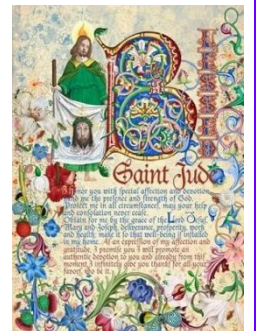 BLESSED
Saint Jude
I honor you with special affection and devotion
send me the presence and strength of God.
Protect me in all circumstances, may your help
and consolation never cease.
Obtain for me by the grace of the Lord
Mary and Joseph, deliverance, prosperity, work
and health; make it so that well-being is installed
in my home. As an expression of my affection and
gratitude, I promise you I will promote an
authentic devotion to you and already from this
moment, I infinitely give you thanks for all your
favors. So be it.